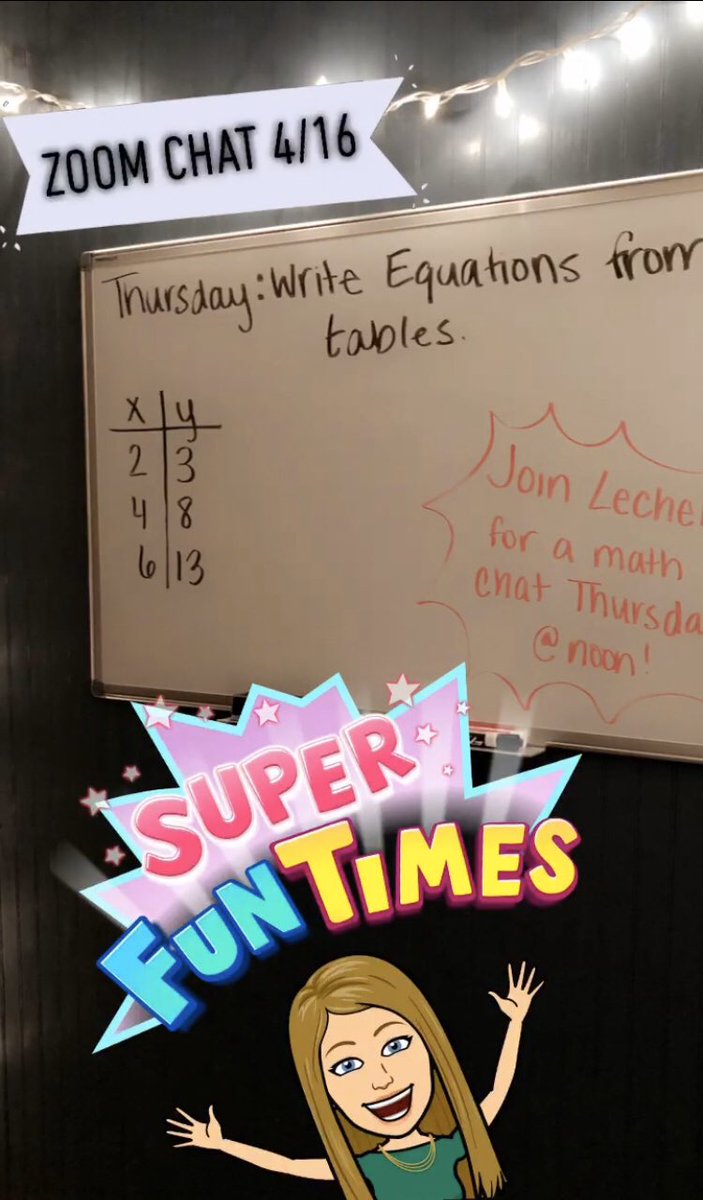 ZOOM CHAT 4/16
Thursday: Write Equations from
tables.
x y
2 3
4 8
6 13
Join Lechel
for a math
chat Thursda
@ noon!
SUPER
FUN TIMES